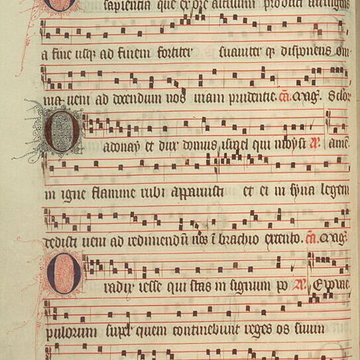 O sapientia que ex ore altissimi prodisti attingens
a fine usq; ad finem fortiter suaviter q; disponens om
nia veni ad docendum nos viam prudentie.
O adonay et dux domus isrl qui moysi
in igne flamme rubi apparuisti et ei in syna legem
dedisti veni ad redimendū nos ī brachio extento.
O radix iesse qui stas in signum po
pulorum super quem continebunt reges os suum